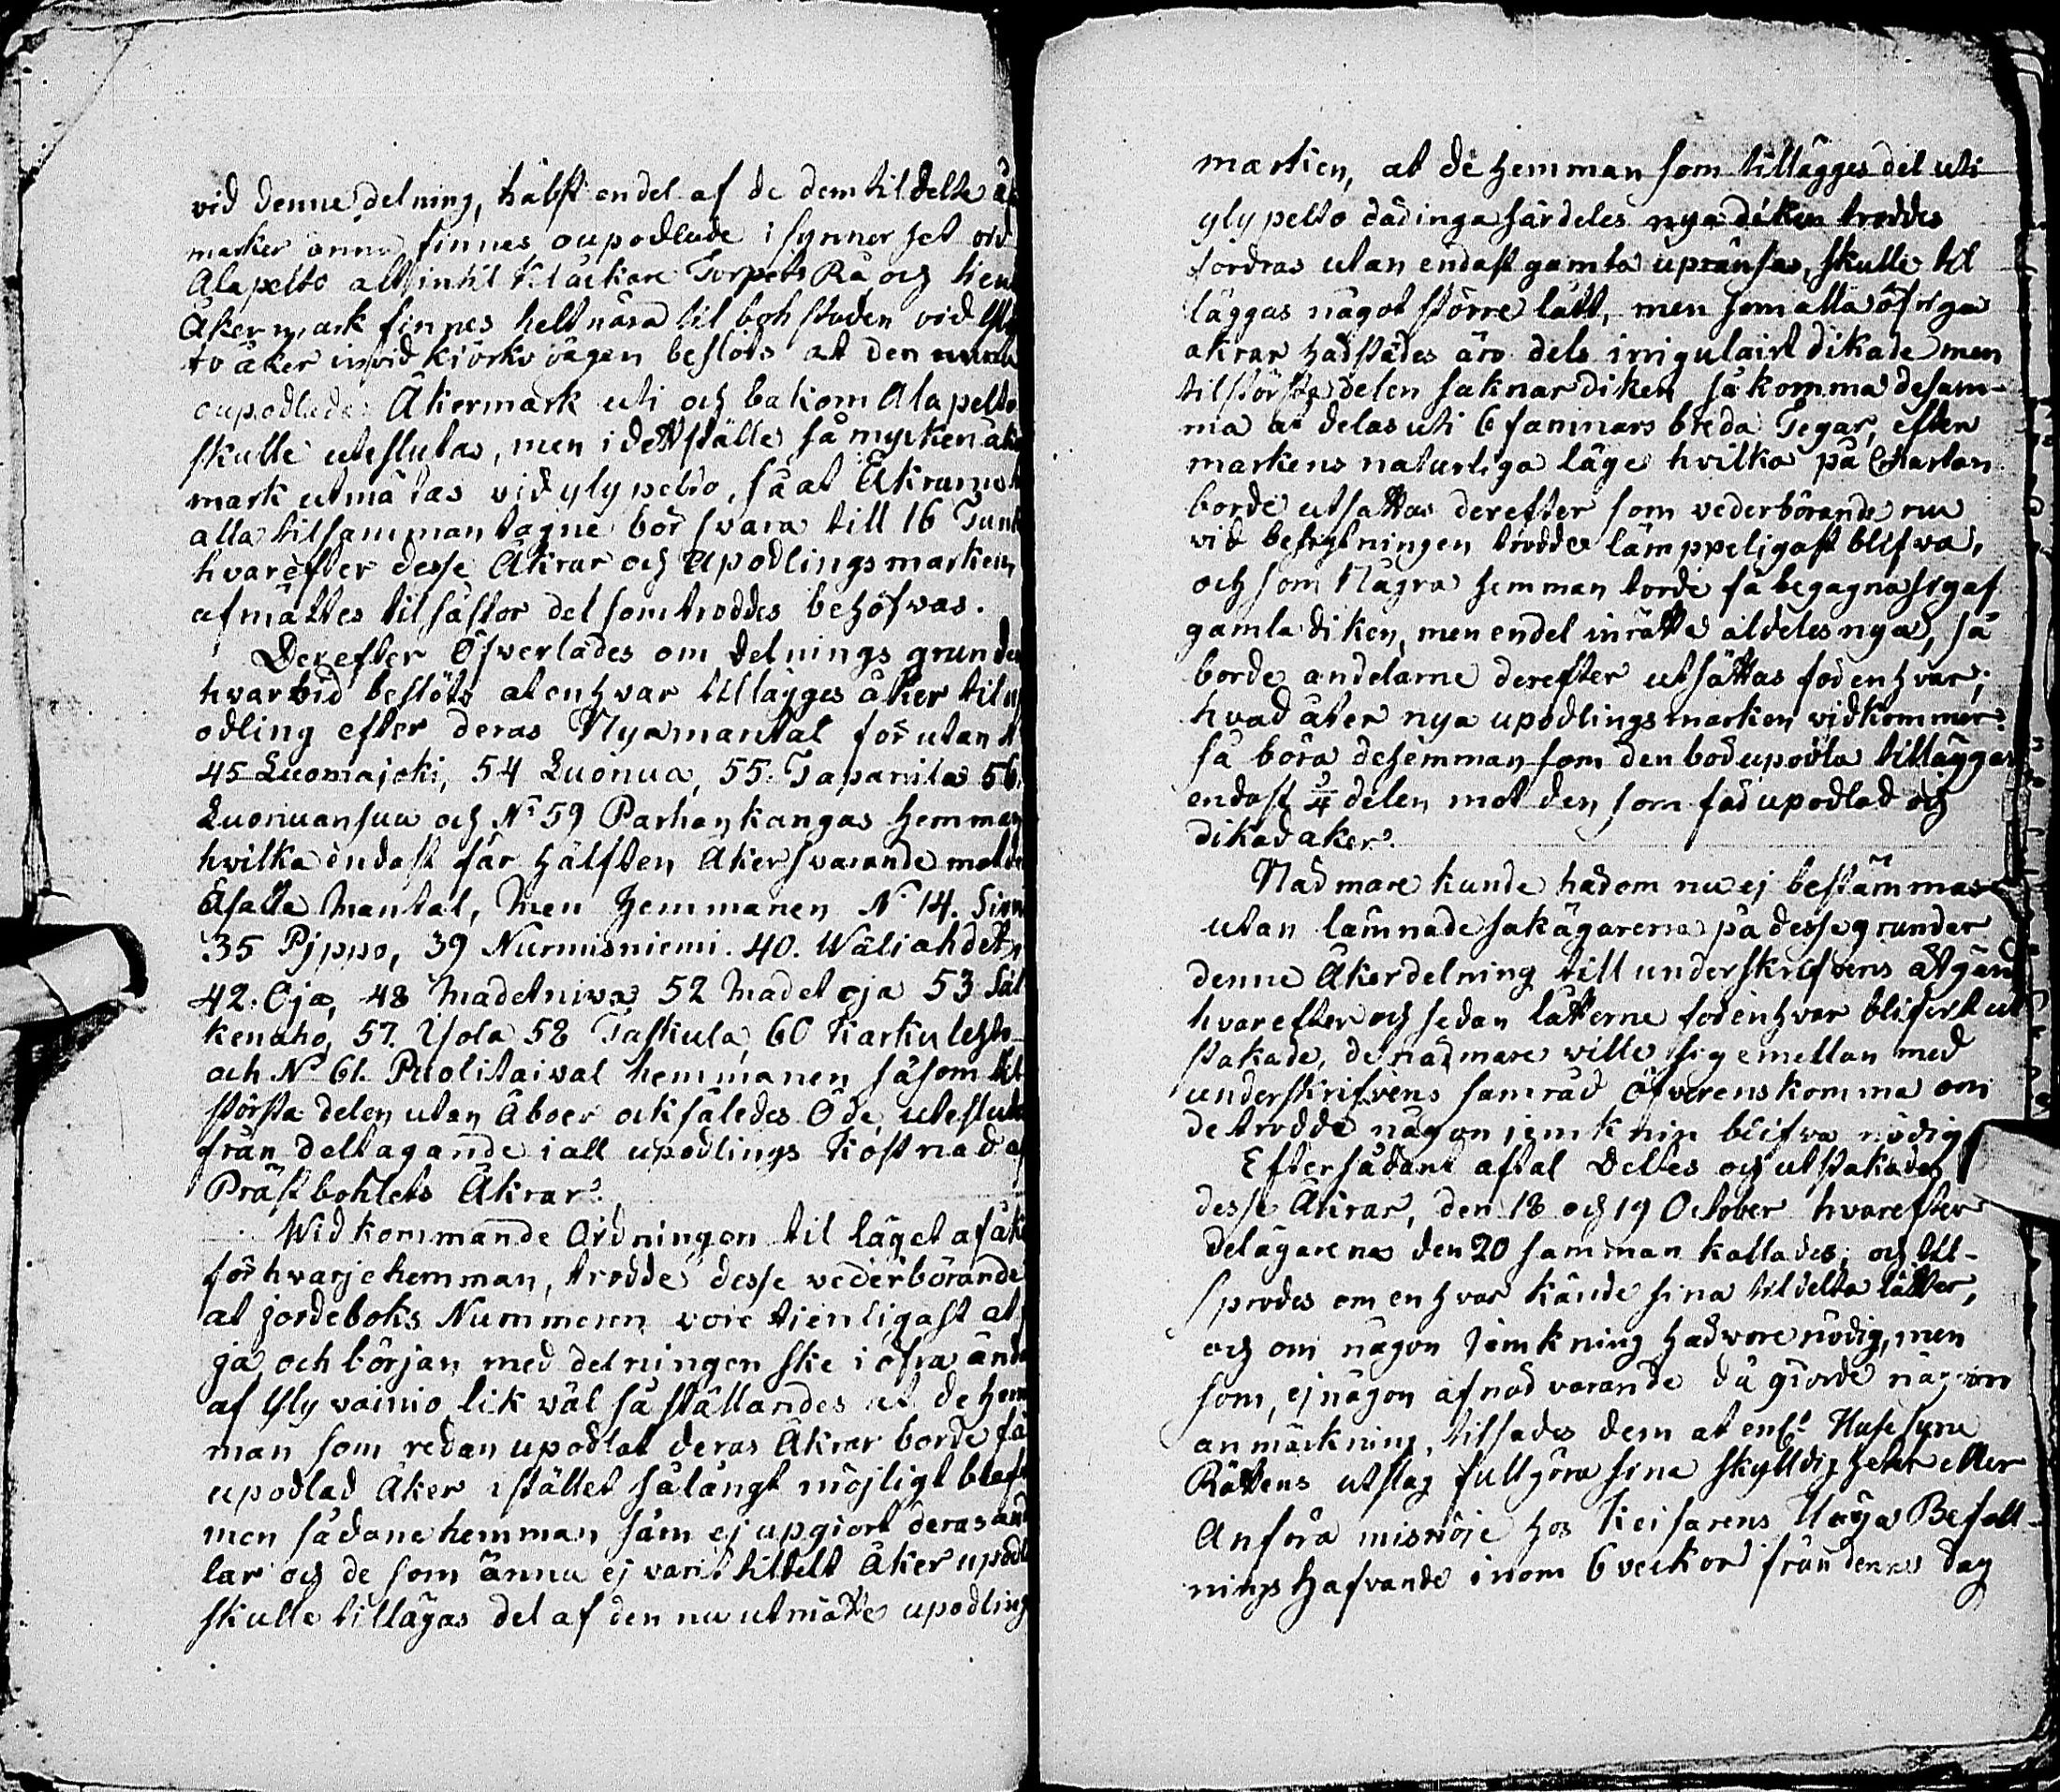 vid denne delning, hälst endel af de dem tildelte
marker ännu finnes oupodlade i synnerhet
Alapelto alt intil Kläckare Torpets Rå, och
Åkermark finnes helt nära til bohlstaden vid
to åker invid kiörko vägen beslöts at den
oupodlade Åkermark uti och bakom Alapelto
skulle uteslutas, men i det ställe så mycken
mark utmätas vid ylypelto, så at
alla tilsamman tagne bör svara till 16
hvarefter desse Åkrar och upodlings marken
afmättes til såstor del som troddes behöfvas.
Derefter Öfverlades om delnings grunden
hvarvid beslöts at en hvar tillägges åker til
odling efter deras Nya mantal för utan
45 Luomajoki, 54 Luonua, 55. Tapanila 56.
Luonuansuu och N:o 59 Parhankangas Hemman
hvilka endast får hälften Åker svarande mot
Åsatta Mantal, Men Hemmanen N:o 14.
35 Pippo, 39 Nurmisniemi. 40. Wäliahdet
42. Oja, 48 Madetniva 52 Madetoja 53
kenaho, 57. Yola 58 Taskula, 60 Karkulehto
och N:o 61. Puolitaival hemmanen såsom til
största delen utan Åboer ock således Öde,
från deltagande i all upodlings kostnad af
Prästbohlets Åkrar.
Widkommande Ordningen til läget af
för hvarje hemman, trodde desse vederbörande
at jordeboks Nummeren vore tienligast at
ja och början med delningen ske i öfra ända
af Ylyvainio lik väl så ställandes at de hem
man som redan upodlat deras Åkrar borde få
upodlad Åker i stället så långt möjligt
men sådane hemman såm ej upgiort deras
lar och de som ännu ej varit tildelt åker
skulle tillägas del af den nu utmätte upodling
marken, at de hemman som tillägges del uti
ylypelto där inga särdeles nya diken troddes
fordras utan endast gamla upränsas, skulle til
läggas något större lått, men som alla öfriga
åkrar härstädes äro dels irrigulairt dikade men
til största delen saknar diken så komma desam-
ma at delas uti 6 famnars breda Tegar, efter
markens naturliga läge hvilka på Chartan
borde utsattas derefter som vederbörande nu
vid besigtningen trodde lämppeligast blifva,
och som Några hemman torde få begagna sig af
gamla diken, men endel inrätta aldeles nya, så
borde andelarne derefter utsättas för en hvar;
hvad åter nya upodlings marken vidkommer
så böra de hemman som den bör upodla tilläggas
endast 3/4 delen mot den som får upodlad och
dikad åker.
Närmare kunde härom nu ej bestämmas
utan lämnade sakägarena på desse grunder
denne Åkerdelning till underskrifvens åtgärd
hvarefter och sedan låtterne för en hvar blifvit ut
stakade, de närmare ville sig emellan med
underskrifvens samråd öfverenskomma om
de trodde någon jemknin blifva nödig
Efter sådant aftal Deltes och utstakades
desse Åkrar, den 18 och 19 October hvarefter
delägarena den 20 samman kallades, och til-
spordes om en hvar kände sina tildelta låtter,
och om någon jemkning här vore nödig, men
som, ej någon af närvarande då giorde någon
anmärkning, tilsades dem at enl:t Husesyne
Rättens utslag fullgöra sina skylldigheter eller
Anföra misnöje hos Keisarens Höga Befall-
nings Hafvande inom 6 veckor från dennes dag